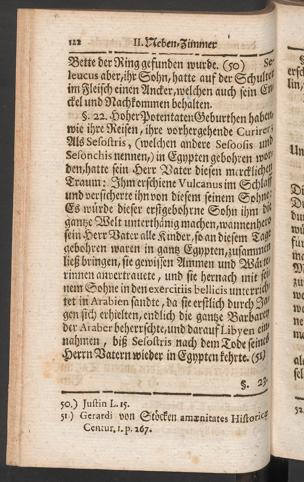 122 II. Neben-Zimmer
Bette der Ring gefunden wurde. (50) Se-
leucus aber, ihr Sohn, hatte auf der Schulter
im Fleisch einen Ancker, welchen auch sein En-
ckel und Nachkommen behalten.
§. 22. Hoher Potentaten Geburthen haben,
wie ihre Reisen, ihre vorhergehende Curirers
Als Sesostris, (welchen andere Sesoosis und
Sesonchis nennen,) in Egypten gebohren wor-
den, hatte sein Herr Vater diesen mercklichen
Traum: Ihm erschiene Vulcanus im Schlaff
und versicherte ihn von diesem seinem Sohne:
Es würde dieser erstgebohrne Sohn ihm die
gantze Welt unterthänig machen, wannenhero
sein Herr Vater alle Kinder, so an diesem Tage
gebohren waren in gantz Egypten, zusammen
ließ bringen, sie gewissen Ammen und Wärte-
rinnen anvertrauete, und sie hernach mit sei-
nem Sohne in den exercitiis bellicis unterrich-
tet in Arabien sandte, da sie erstlich durch Ja-
gen sich erhielten, endlich die gantze Barbarey
der Araber beherrschte, und darauf Libyen ein-
nahmen, biß Sesostris nach dem Tode seines
Herrn Vatern wieder in Egypten kehrte. (51)
§. 23.
50.) Justin L. 15.
51.) Gerardi von Stöcken amœnitates Historicæ
Centur. 1. p. 267.